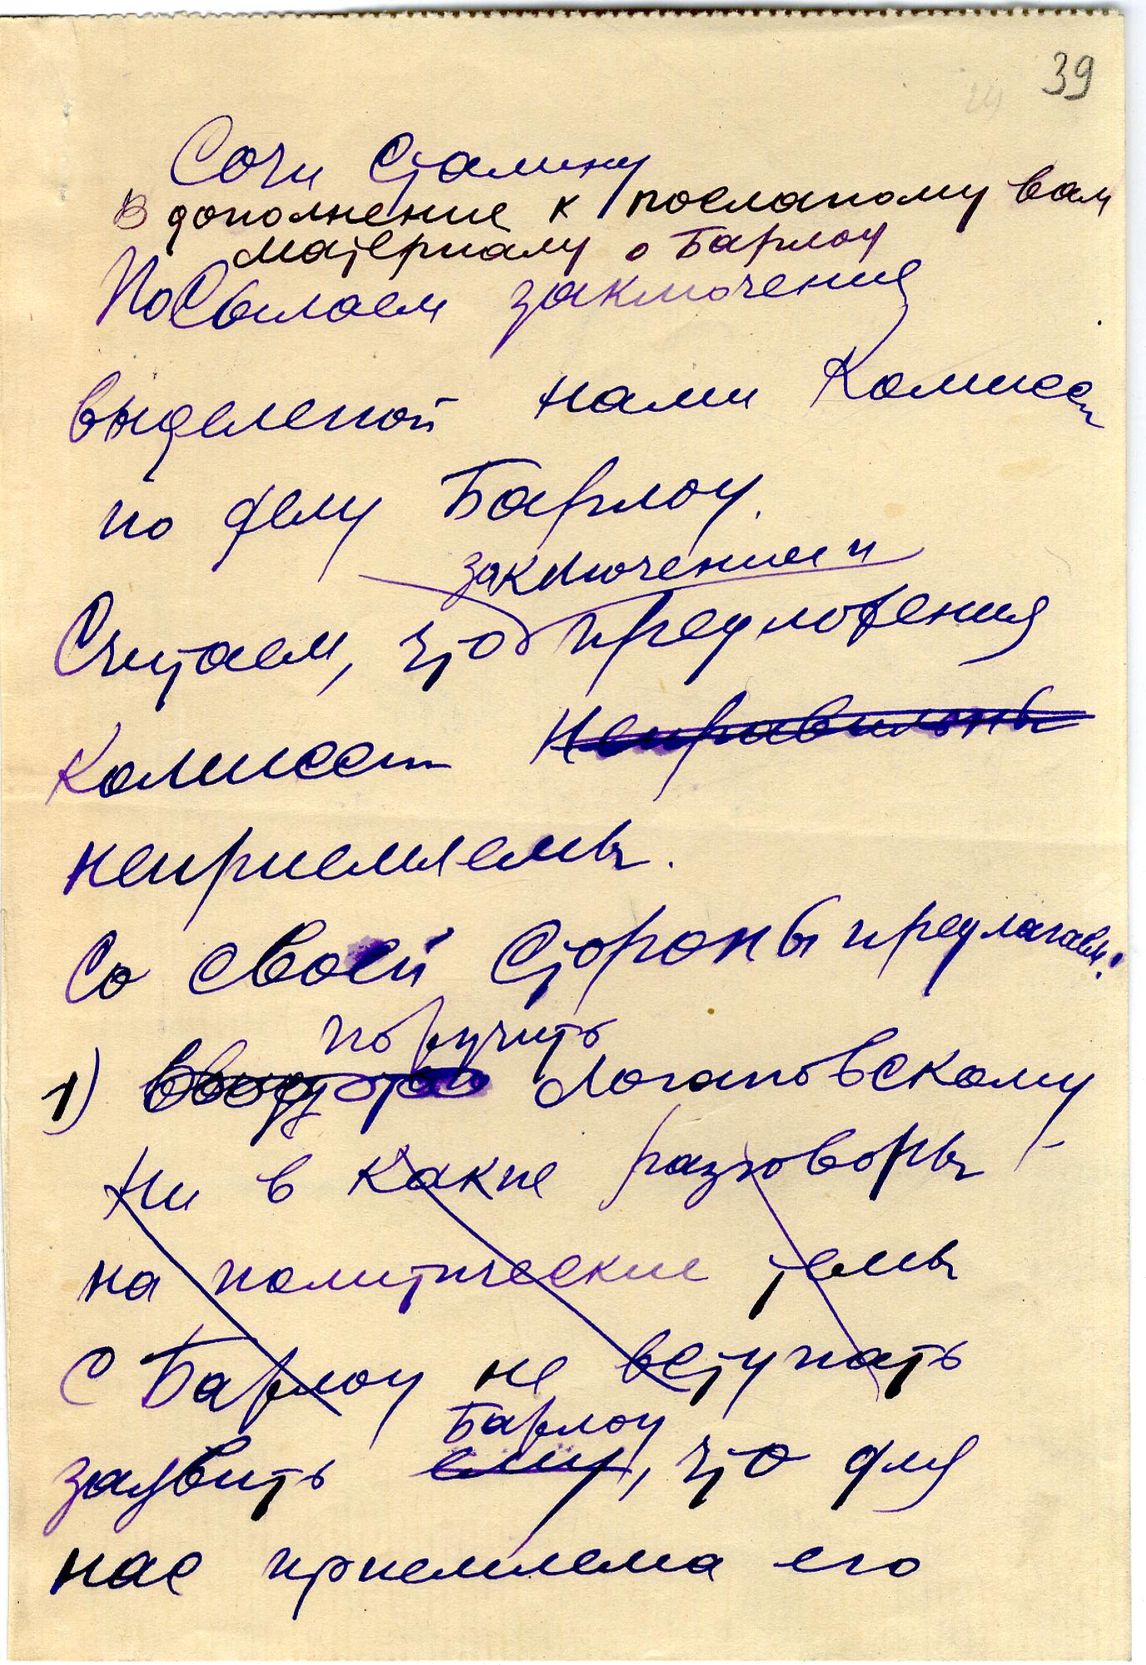 39
Сочи Сталину
В дополнение к посланому вам
материалу о Барлоу
Посылаем заключения
выделеной нами Комисси
по делу Барлоу.
заключение и
Считаем, что предложения
Комиссии неправильны
неприемлемы.
Со своей стороны предлагаем:
поручить
1) Логановскому
Ни в какие разговоры
на политические темы
с Барлоу не вступать
Барлоу
заявить ему, что для
нас приемлема его